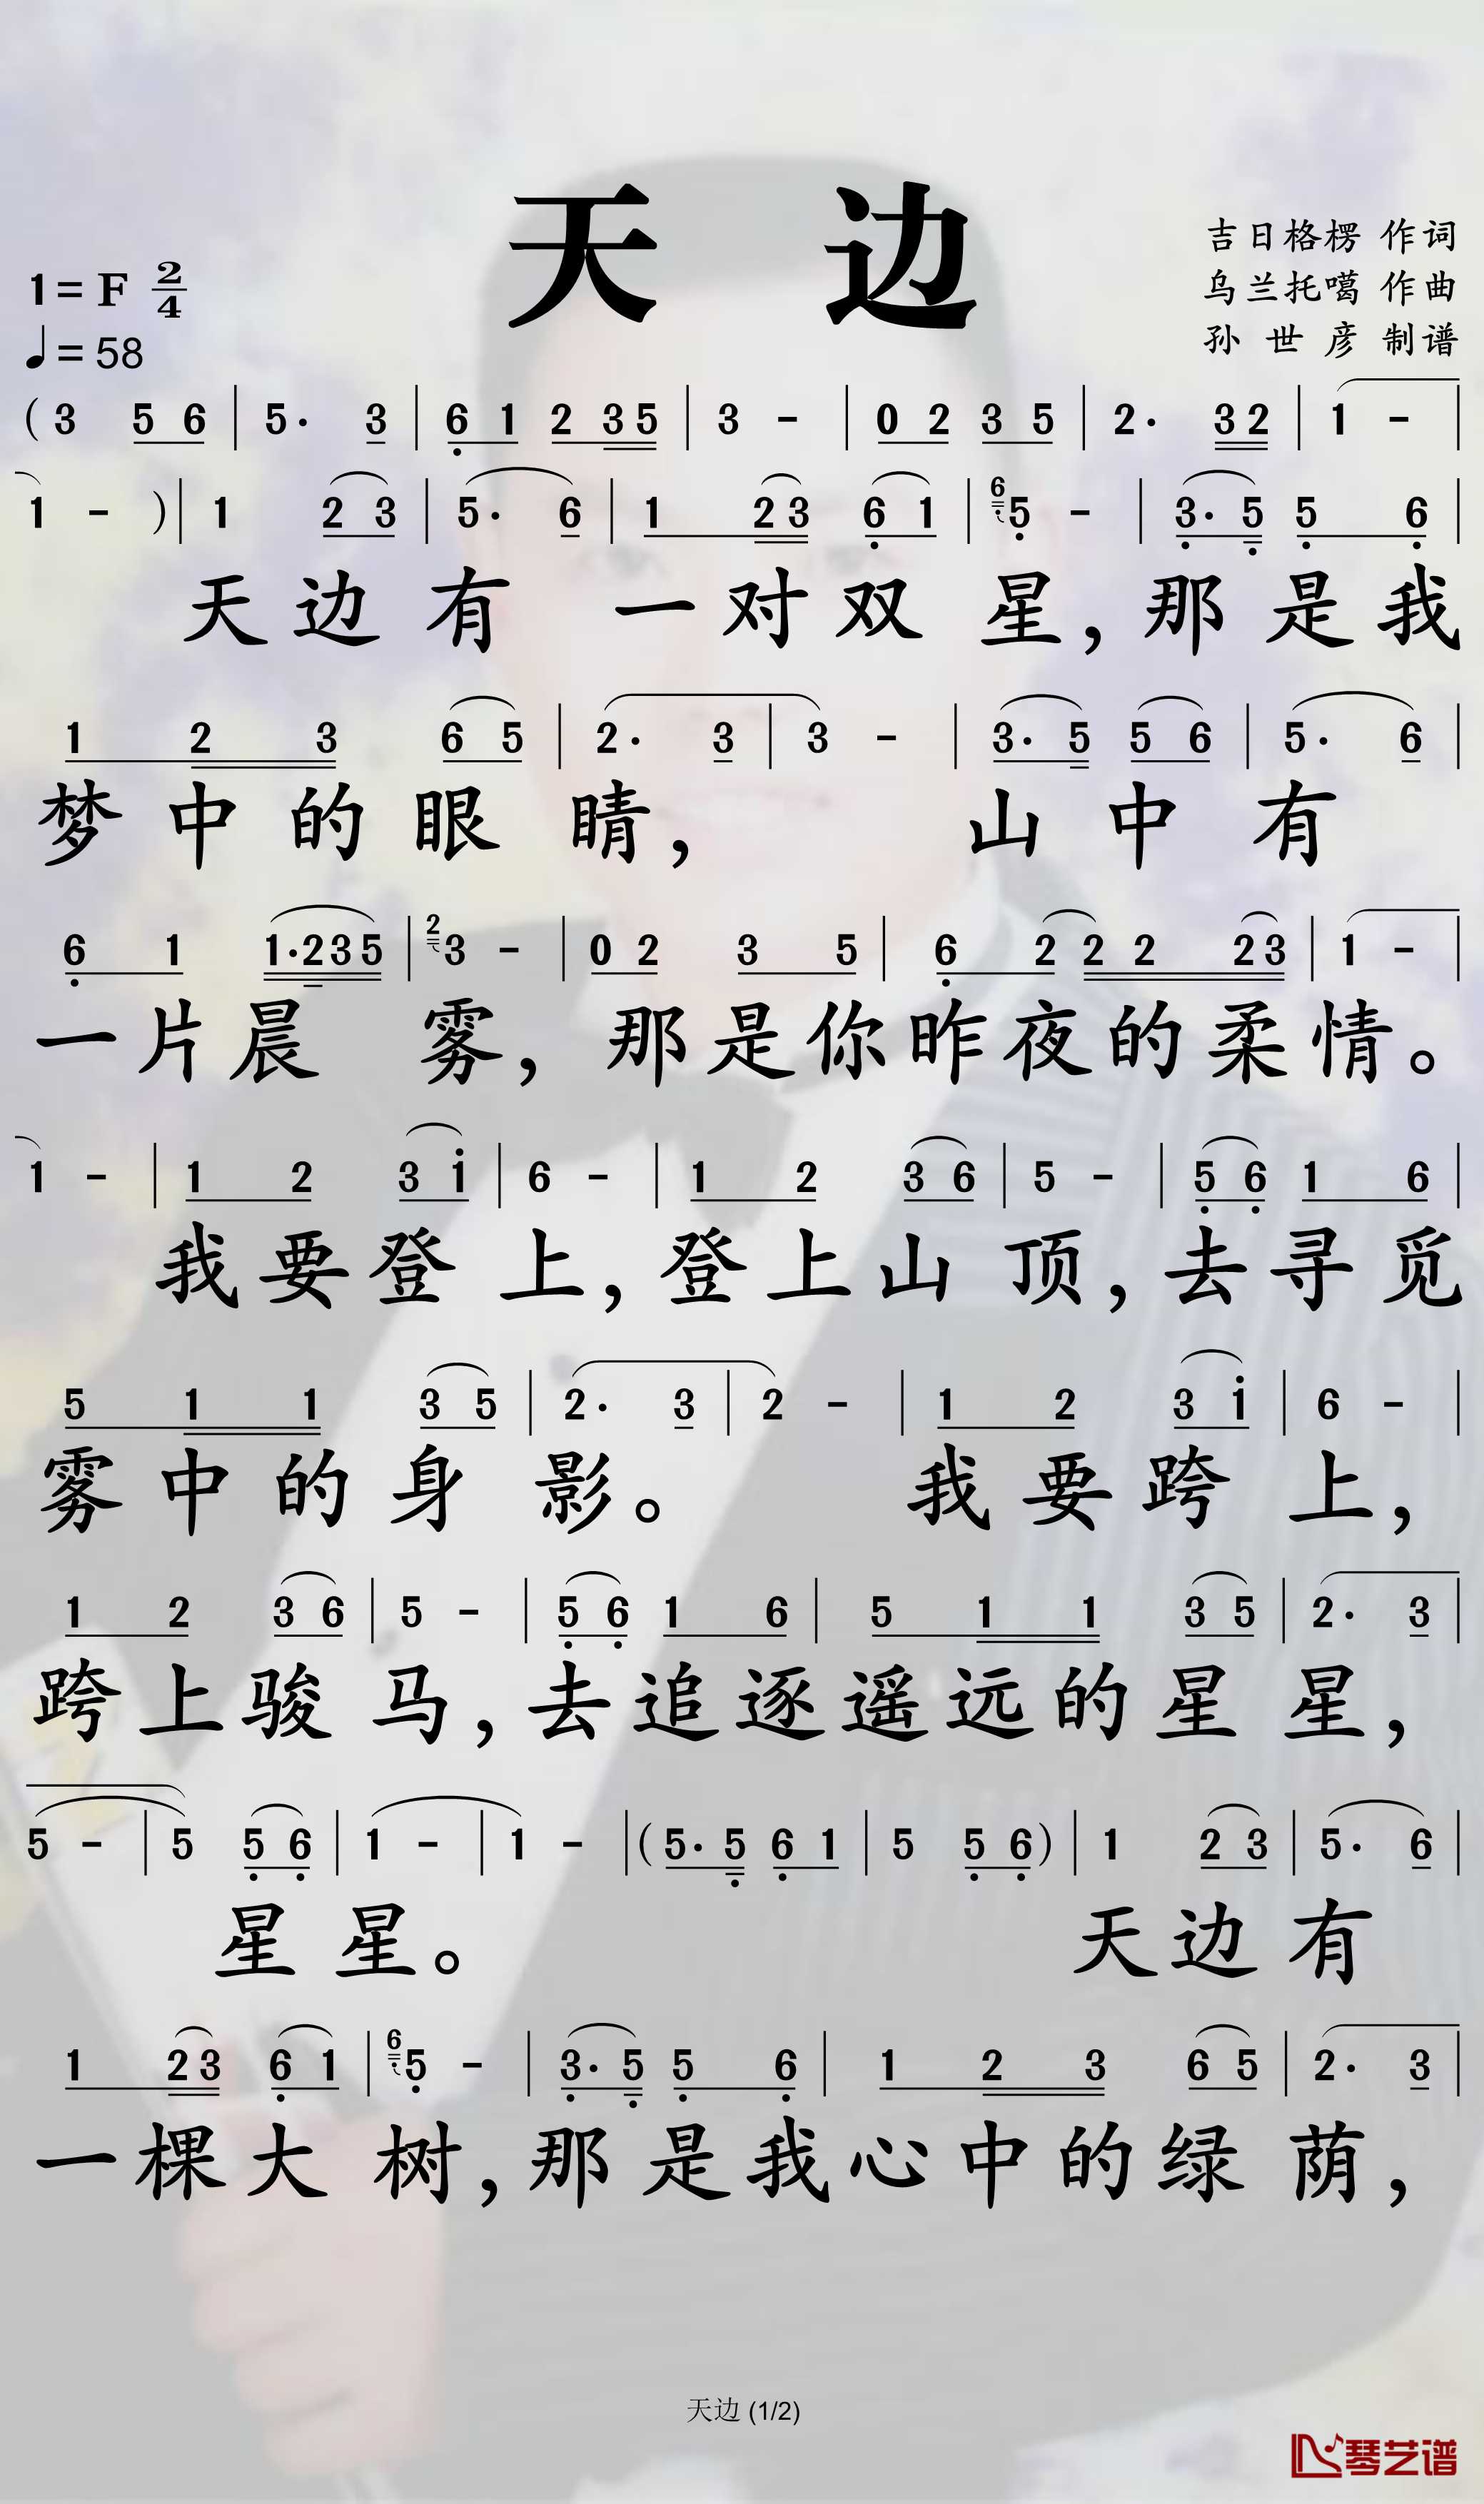 天 边
吉日格楞 作词
1= F 2/4
乌兰托噶 作曲
♩= 58
孙 世 彦 制谱
( 3 5 6 | 5· 3 | 6 1 2 3 5 | 3 - | 0 2 3 5 | 2· 3 2 | 1 - |
1 - ) | 1 2 3 | 5· 6 | 1 2 3 6 1 | 6 5 - | 3· 5 5 6 |
天 边 有 一 对 双 星, 那 是 我
1 2 3 6 5 | 2· 3 | 3 - | 3· 5 5 6 | 5· 6 |
梦 中 的 眼 睛, 山 中 有
6 1 1·2 3 5 | 2 3 - | 0 2 3 5 | 6 2 2 2 2 3 | 1 - |
一 片 晨 雾, 那 是 你 昨 夜 的 柔 情。
1 - | 1 2 3 i | 6 - | 1 2 3 6 | 5 - | 5 6 1 6 |
我 要 登 上, 登 上 山 顶, 去 寻 觅
5 1 1 3 5 | 2· 3 | 2 - | 1 2 3 i | 6 - |
雾 中 的 身 影。 我 要 跨 上,
1 2 3 6 | 5 - | 5 6 1 6 | 5 1 1 3 5 | 2· 3 |
跨 上 骏 马, 去 追 逐 遥 远 的 星 星,
5 - | 5 5 6 | 1 - | 1 - | ( 5· 5 6 1 | 5 5 6 ) | 1 2 3 | 5· 6 |
星 星。 天 边 有
1 2 3 6 1 | 6 5 - | 3· 5 5 6 | 1 2 3 6 5 | 2· 3 |
一 棵 大 树, 那 是 我 心 中 的 绿 荫,
天边 (1/2)
琴艺谱